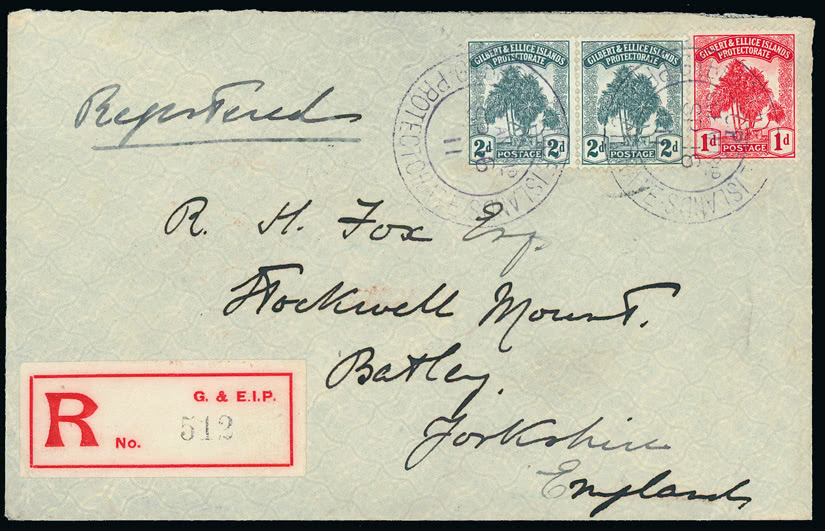 Registered
GILBERT & ELLICE ISLANDS
PROTECTORATE
2d 2d
POSTAGE
GILBERT & ELLICE ISLANDS
PROTECTORATE
2d 2d
POSTAGE
GILBERT & ELLICE ISLANDS
PROTECTORATE
1d 1d
POSTAGE
ISLANDS PROTECTORATE
11
ISLANDS
R. H. Fox Esq.
Stockwell Mount.
Batley.
Yorkshire
England
R
G. & E.I.P.
No. 512